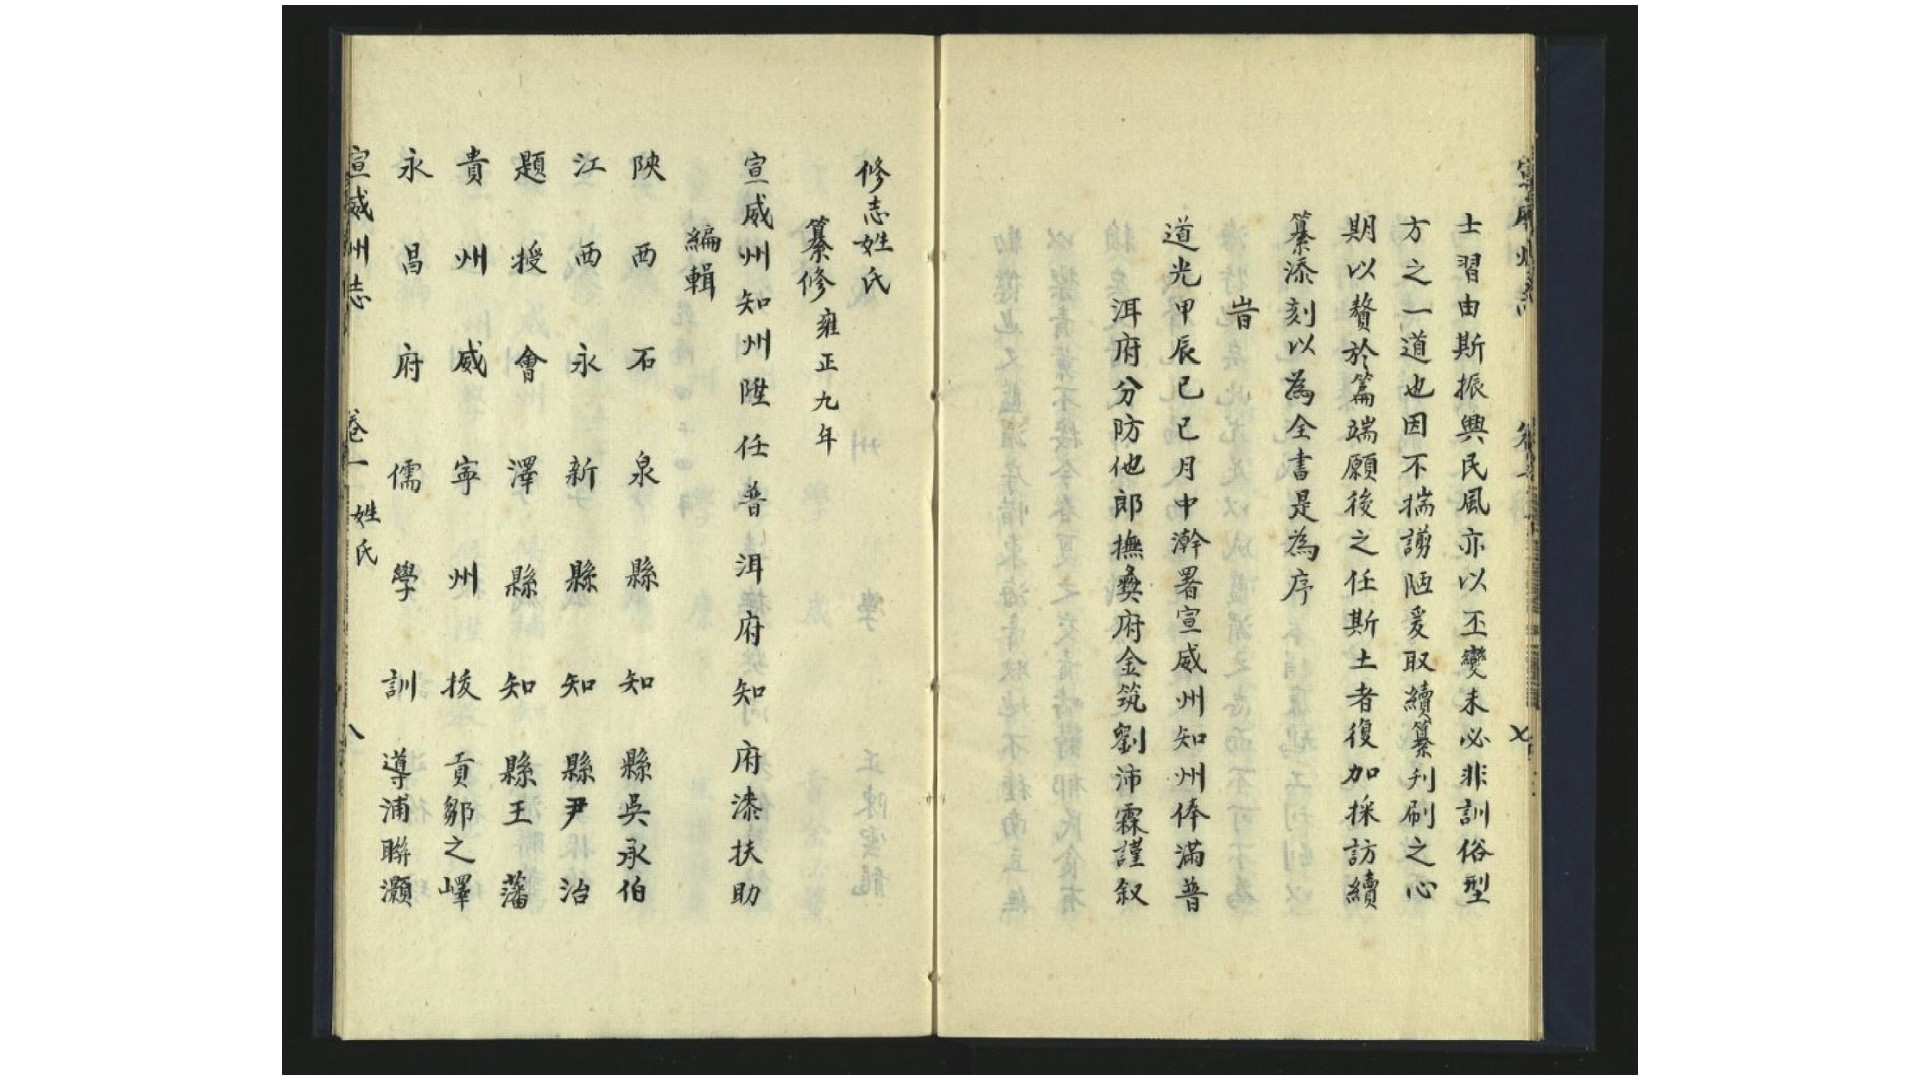 士習由斯振興民風亦以丕變未必非訓俗型
方之一道也因不揣謭陋爰取續纂刋刷之心
期以贅於篇端願後之任斯土者復加採訪續
纂添刻以為全書是為序
旹
道光甲辰已巳月中澣署宣威州知州俸滿普
洱府分防他郎撫彝府金筑劉沛霖謹叙
修志姓氏
纂修雍正九年
宣威州知州陞任普洱府知府漆扶助
編輯
陝西石泉縣知縣吳承伯
江西永新縣知縣尹治
題授會澤縣知縣王藩
貴州威寧州拔貢鄒之嶧
永昌府儒學訓導浦聯灝
宣威州志 卷一 姓氏 八